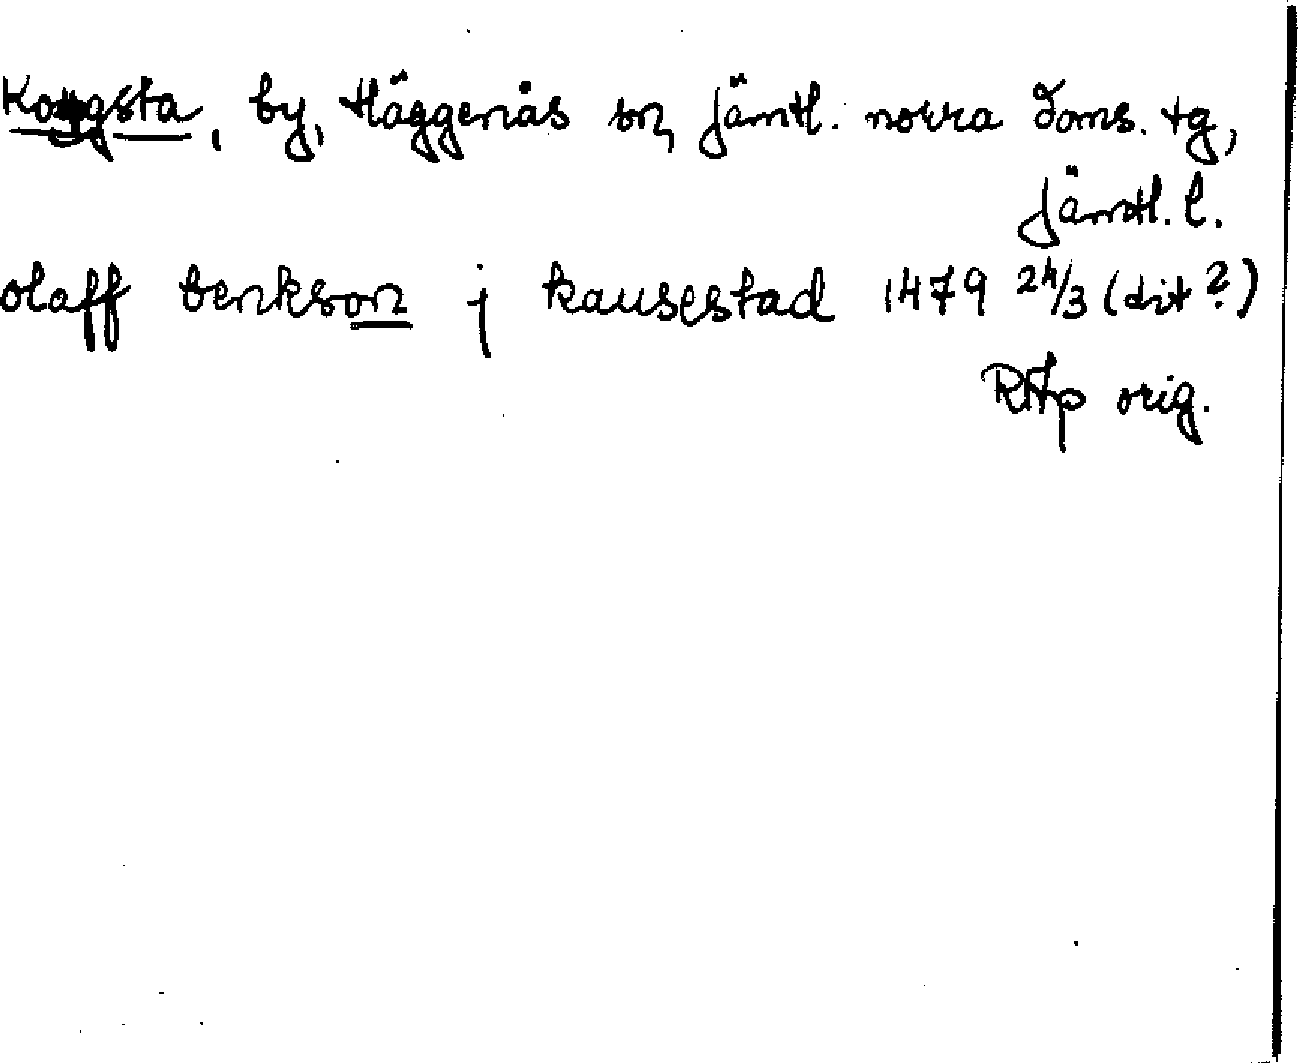 Kougsta, by, Häggenås sn, Jämtl. norra doms. tg,
Jämtl. l.
olaff benkson j kausestad 1479 24/3 (dit?)
RAp orig.